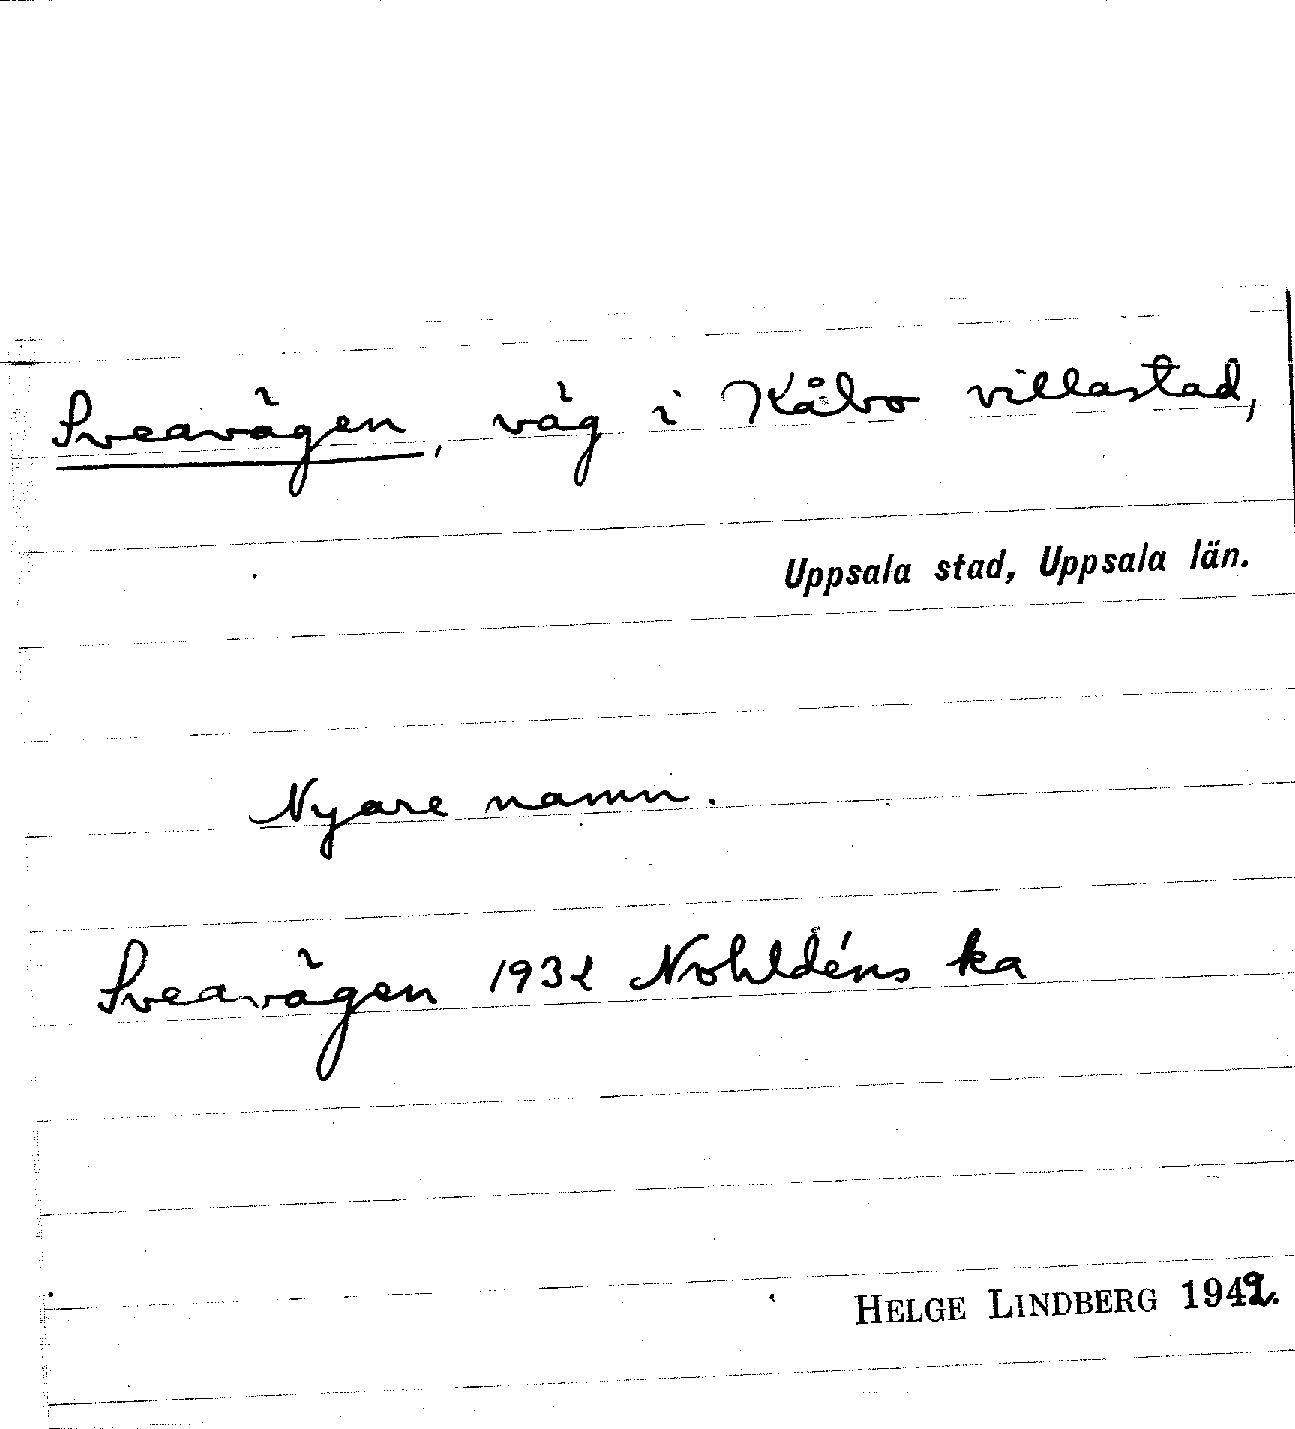 Sveavägen, väg i Kåbo villastad,
Uppsala stad, Uppsala län.
Nyare namn.
Sveavägen 1932 Nohldéns ka
HELGE LINDBERG 1942.